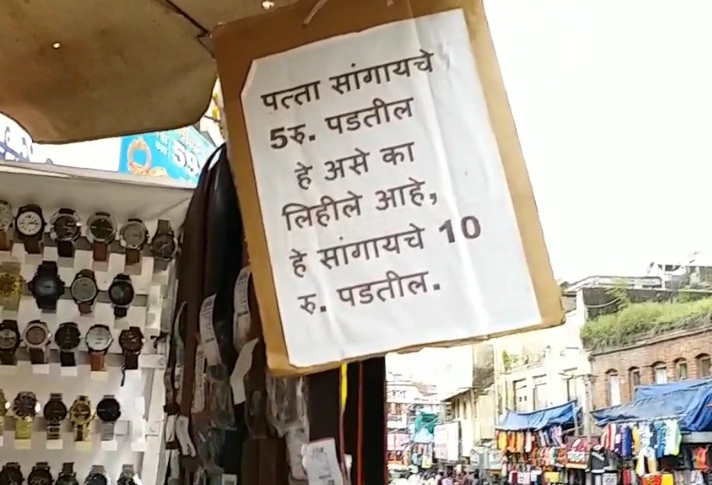 पत्ता सांगायचे
5रु. पडतील
हे असे का
लिहीले आहे,
हे सांगायचे 10
रु. पडतील.